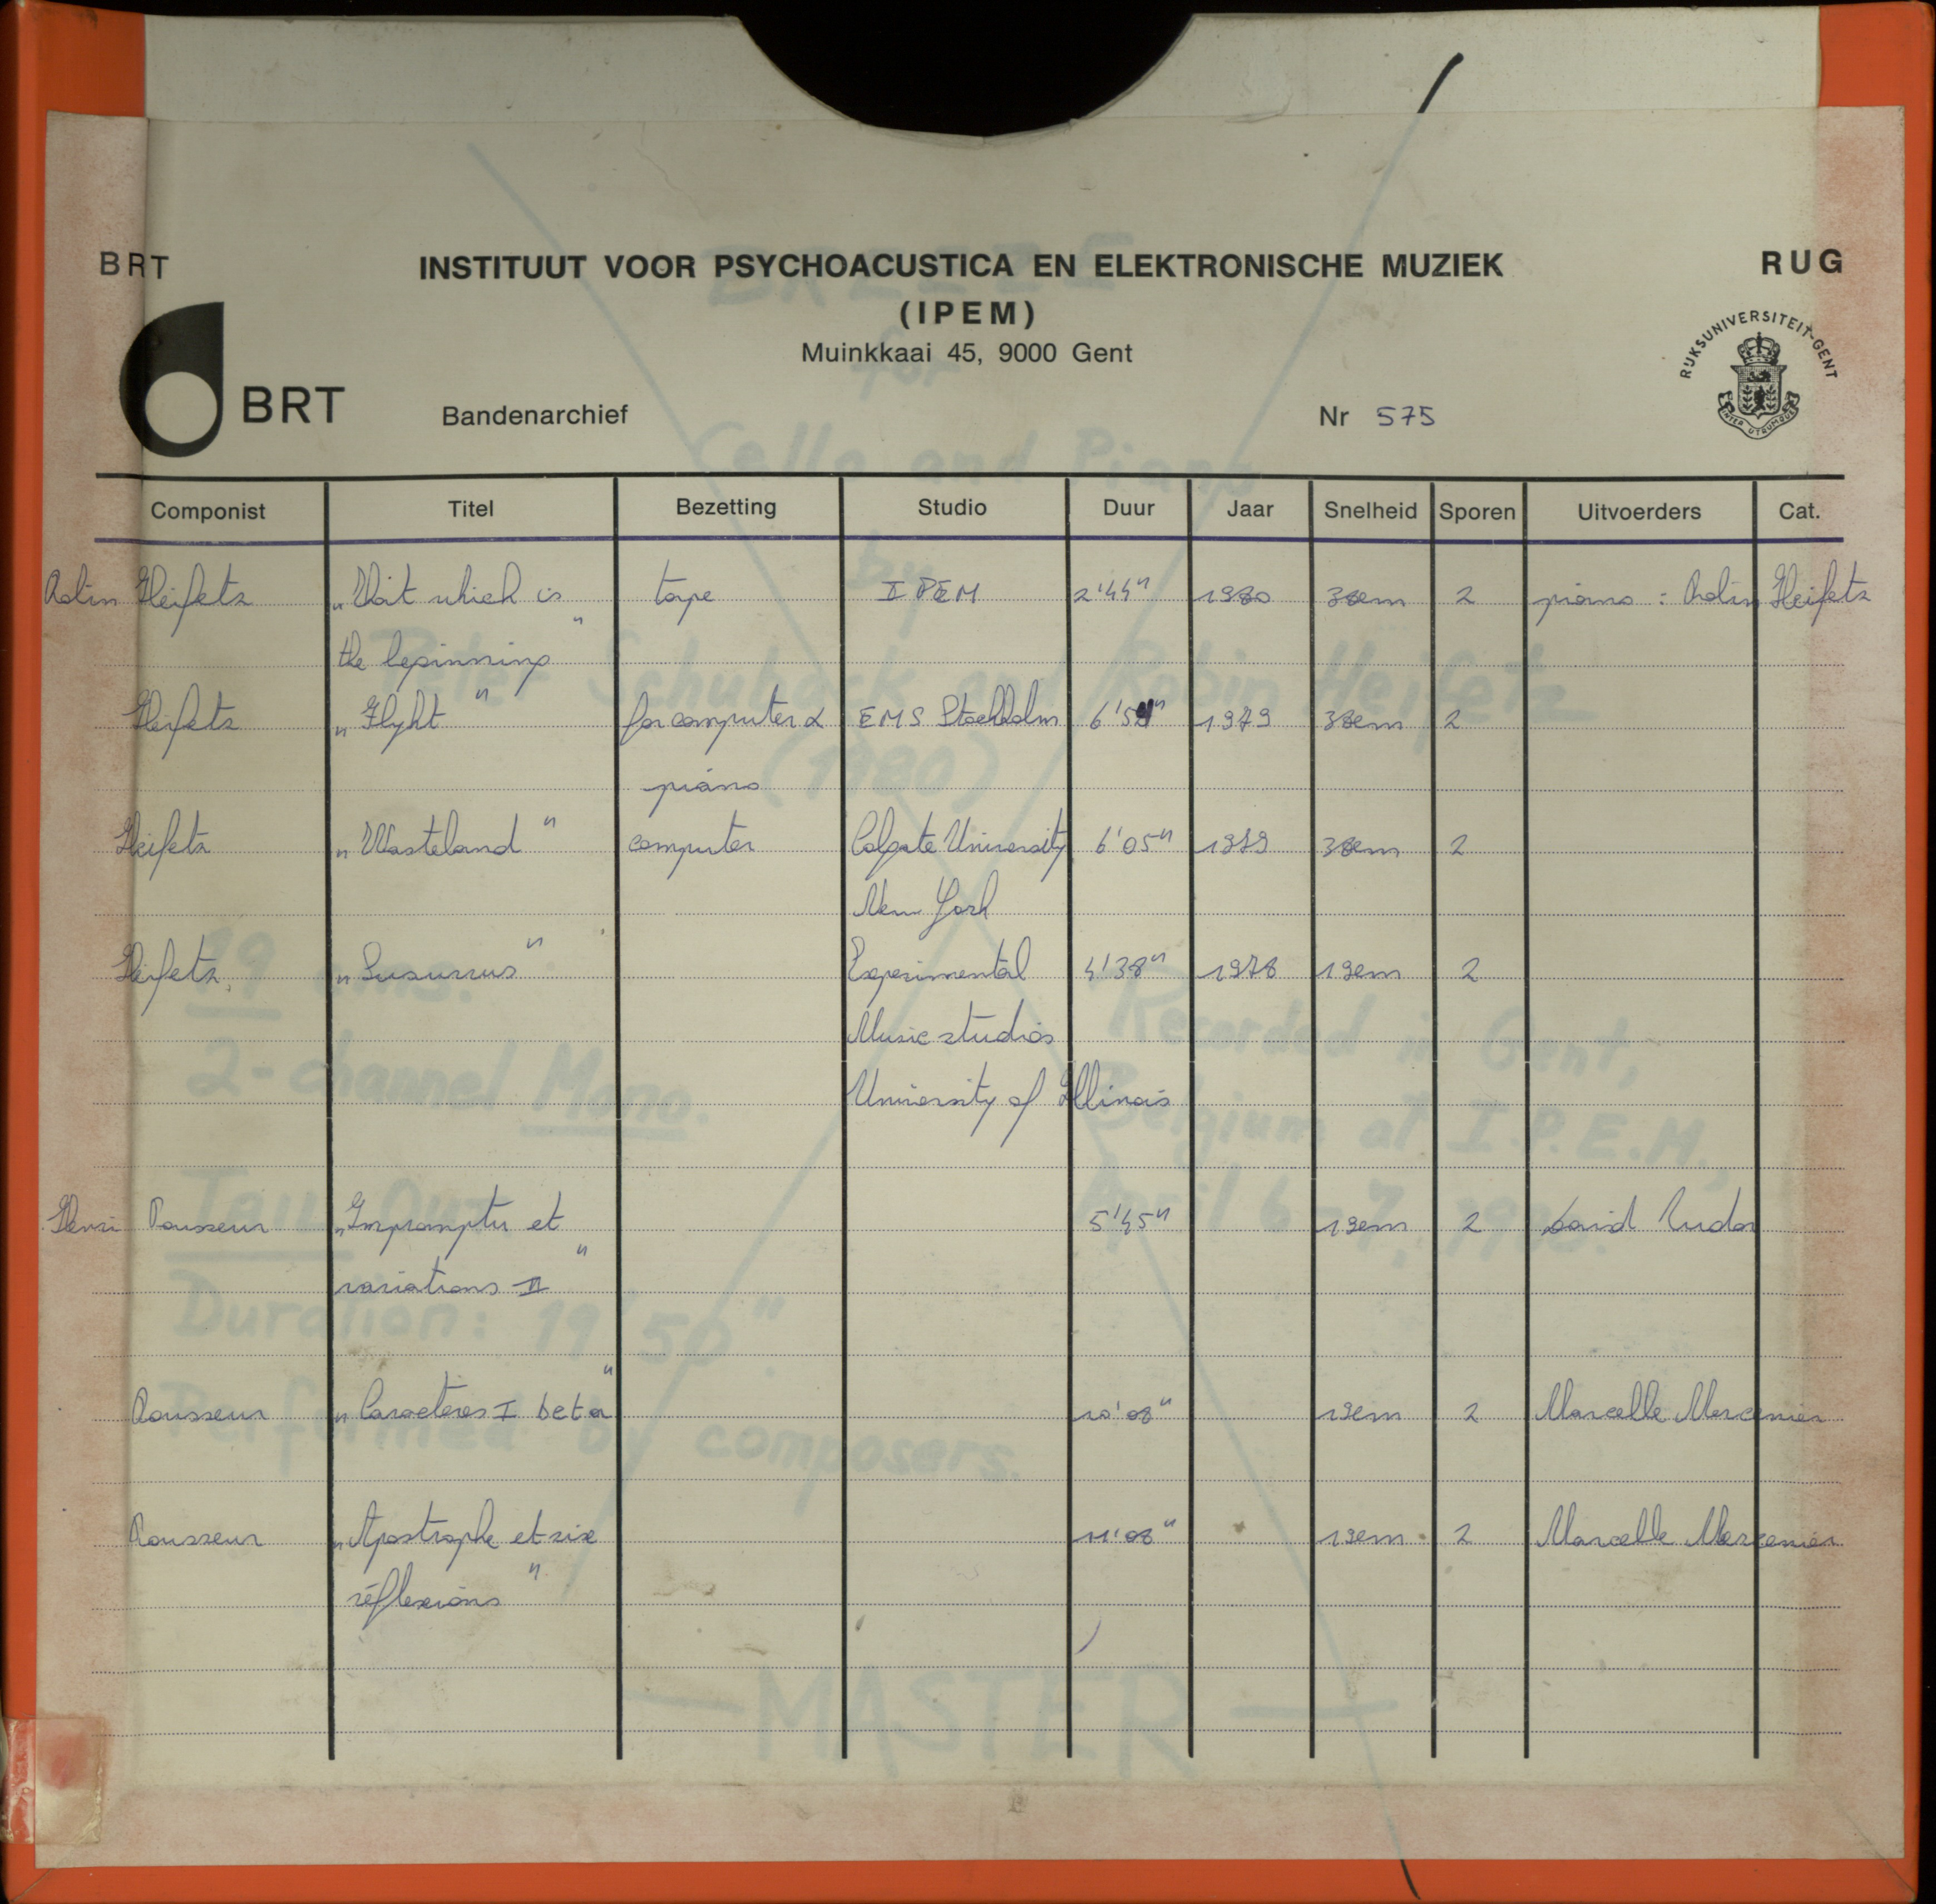 BRT
INSTITUUT VOOR PSYCHOACUSTICA EN ELEKTRONISCHE MUZIEK
RUG
(IPEM)
Muinkkaai 45, 9000 Gent
RIJKSUNIVERSITEIT-GENT
INTER UTRUMQUE
BRT
Bandenarchief
Nr 575
Componist Titel Bezetting Studio Duur Jaar Snelheid Sporen Uitvoerders Cat.
Robin Heifetz „Wait which is tape IPEM 2'44" 1980 38cm 2 piano : Robin Heifetz
the beginning"
Heifetz „Flyht" for computer & EMS Stockholm 1979 38cm 2
piano
Heifetz „Wasteland" computer Colgate University 6'05" 1979 38cm 2
New York
Heifetz „Susurrus" Experimental 4'38" 1978 19cm 2
Music studios
University of Illinois
Henri Pousseur „Impromptu et 5'45" 19cm 2 David Tudor
variations II"
Pousseur „Caractères I beta" 10'08" 19cm 2 Marcelle Mercenier
Pousseur „Apostrophe et six 11'08" 19cm 2 Marcelle Mercenier
réflexions"
BREEZE
for
Cello and Piano
by
Peter Schuback and Robin Heifetz
(1980)
19 cms.
2-channel Mono.
Tail Out
Duration: 19'50".
Performed by composers.
Recorded in Gent,
Belgium at I.P.E.M.,
April 6-7, 1980.
— MASTER —